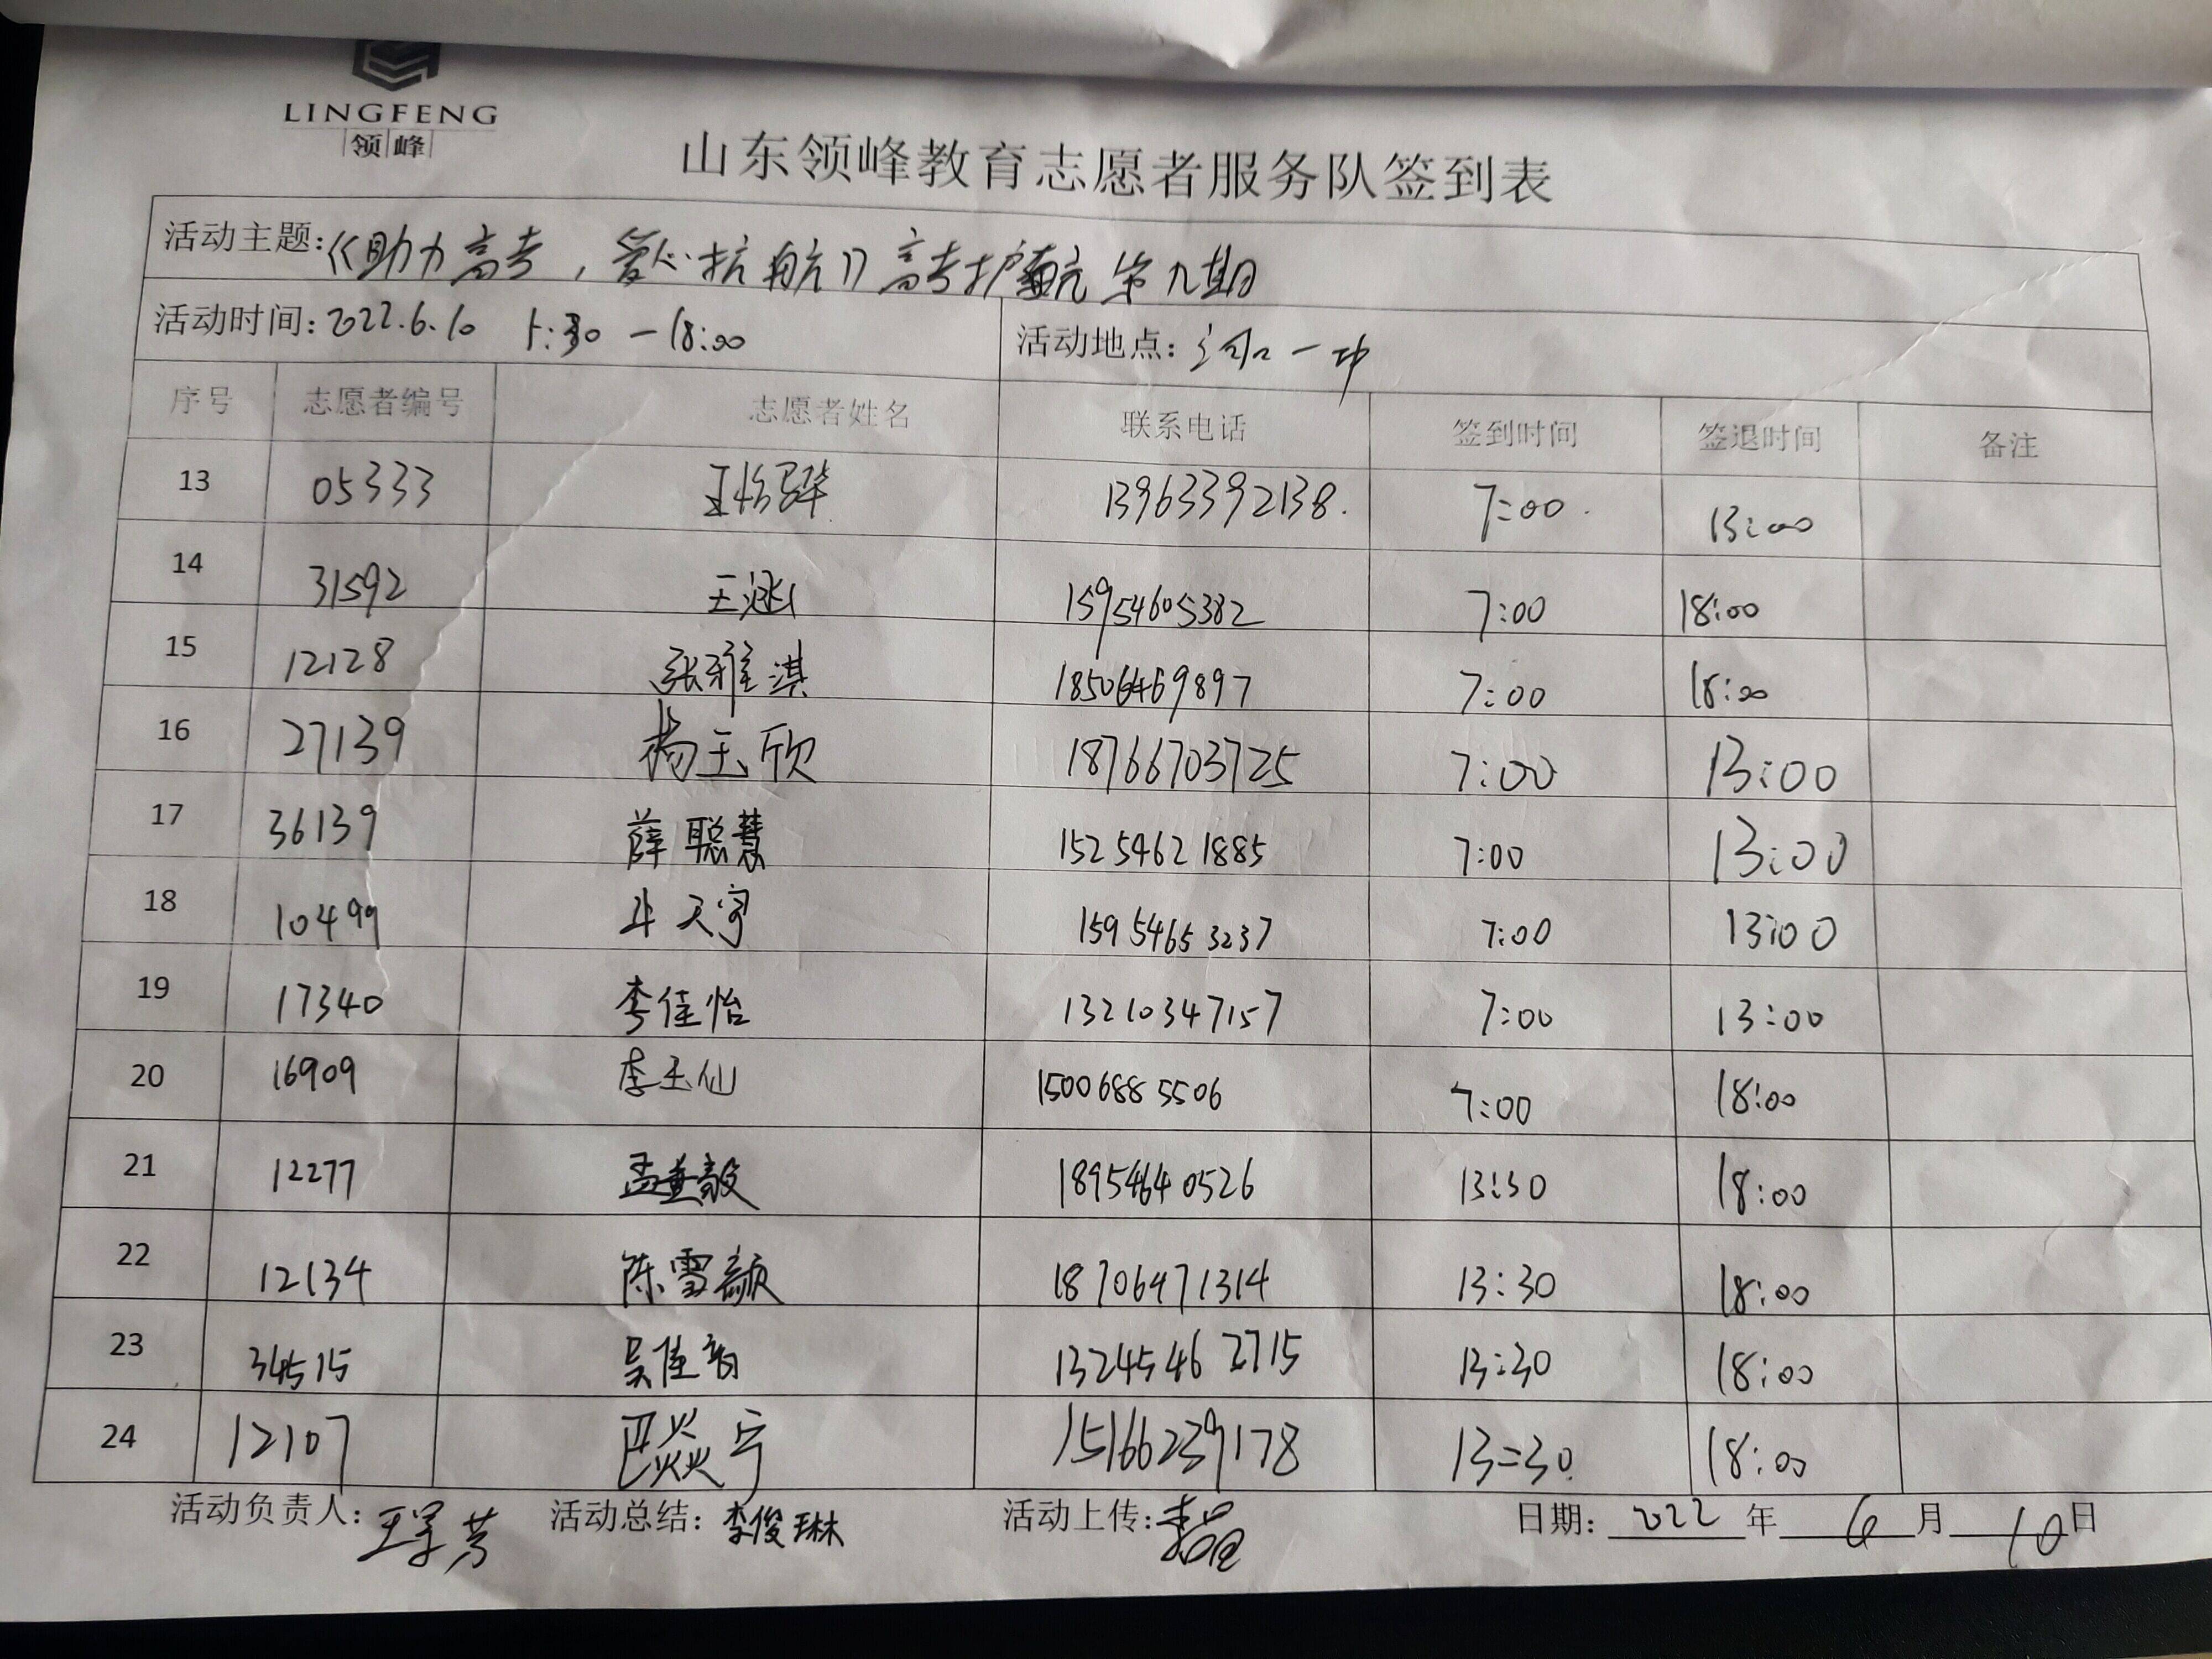 LINGFENG
领峰
山东领峰教育志愿者服务队签到表
活动主题：《助力高考，爱心抗航》高考护航第九期
活动时间：2022.6.10 :30 — 18:00 活动地点： 一中
序号 志愿者编号 志愿者姓名 联系电话 签到时间 签退时间 备注
13 05333 王怡骅 13963392138. 7:00 13:00
14 31592 王涵 15954605382 7:00 18:00
15 12128 张雅淇 18506469897 7:00 18:00
16 27139 杨玉欣 18766703725 7:00 13:00
17 36139 薛聪慧 15254621885 7:00 13:00
18 10499 天宇 15954653237 7:00 13:00
19 17340 李佳怡 13210347157 7:00 13:00
20 16909 李玉仙 15006885506 7:00 18:00
21 12277 孟 毅 18954640526 13:30 18:00
22 12134 陈雪颜 18706471314 13:30 18:00
23 34515 吴佳 13245462715 13:30 18:00
24 12107 巴焱宁 15166239178 13:30 18:00
活动负责人：王 芳 活动总结：李俊琳 活动上传：李 日期：2022年6月10日